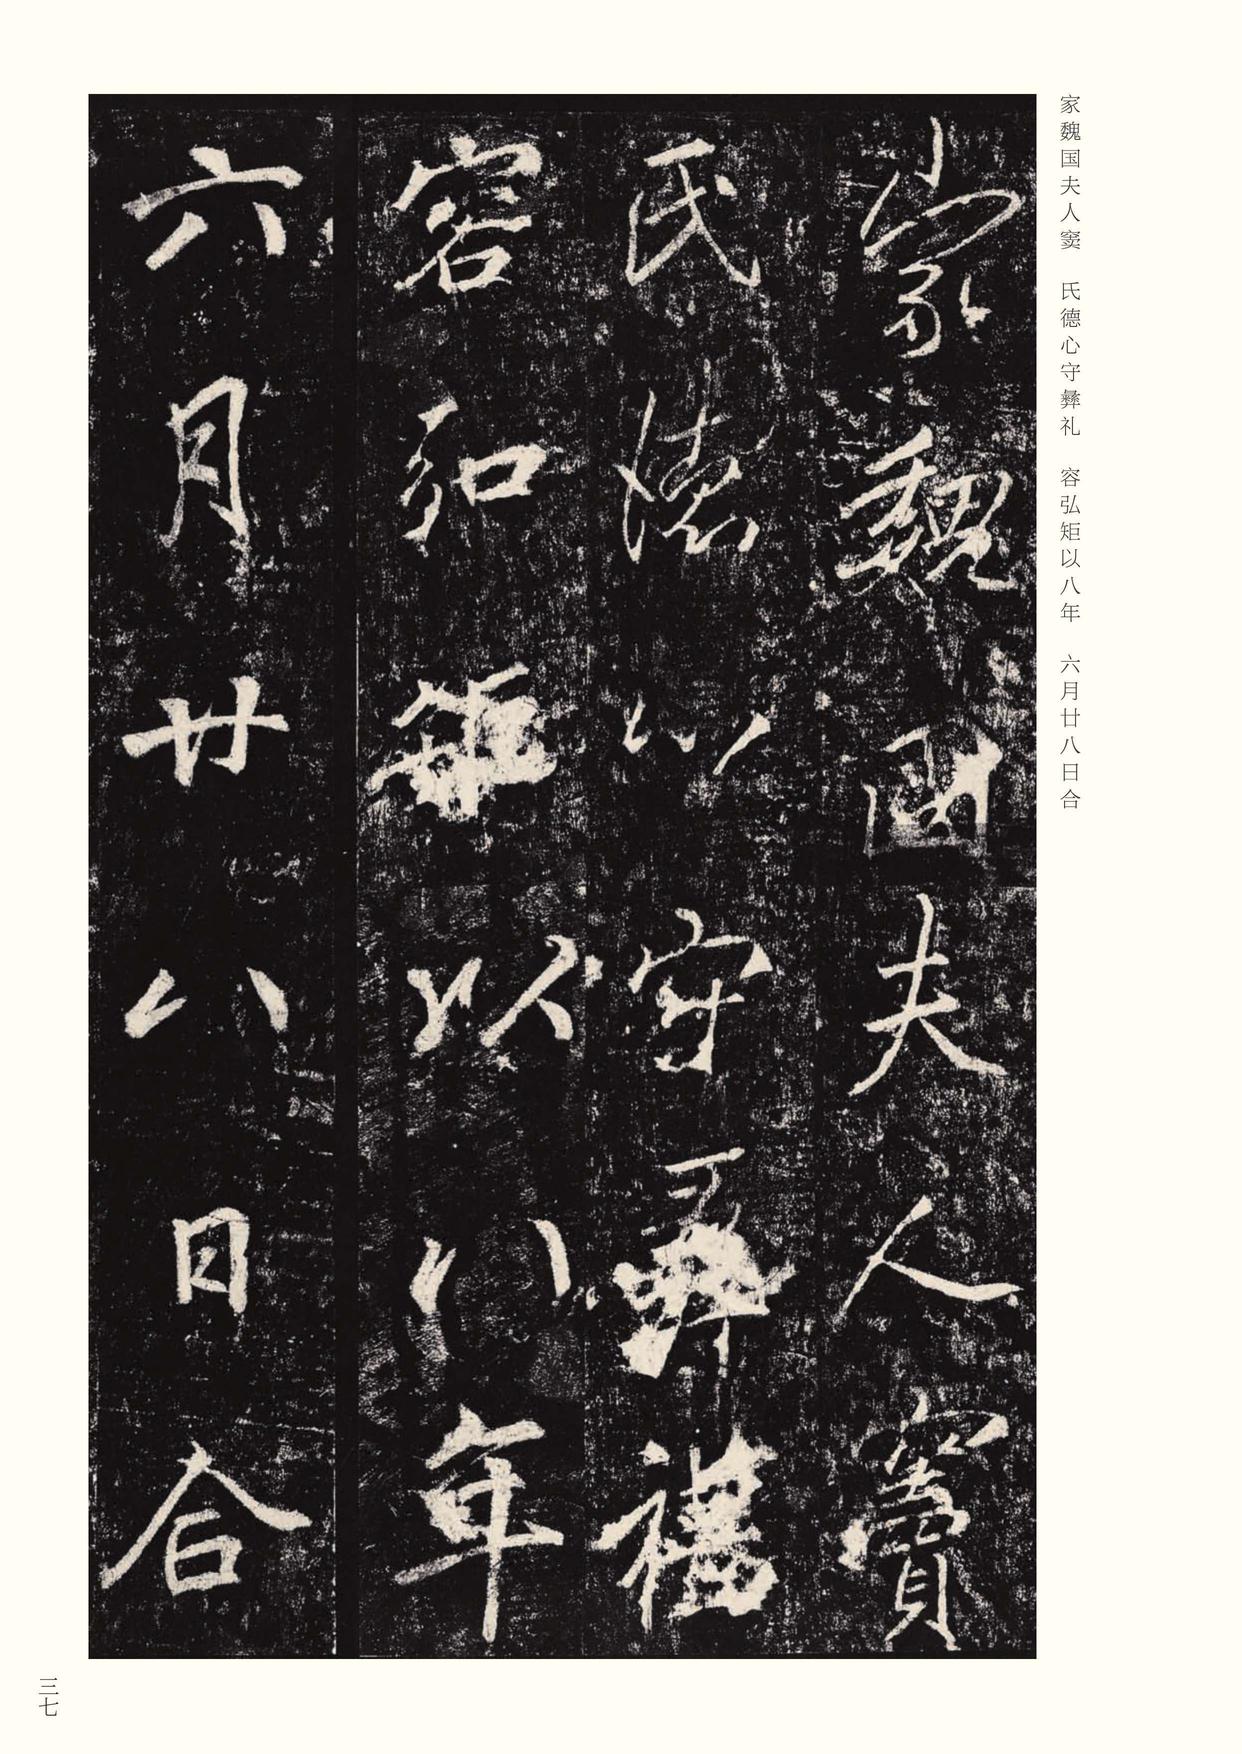 家魏國夫人竇
氏德心守彝禮
容弘矩以八年
六月廿八日合
家魏国夫人窦　氏德心守彝礼　容弘矩以八年　六月廿八日合
三七